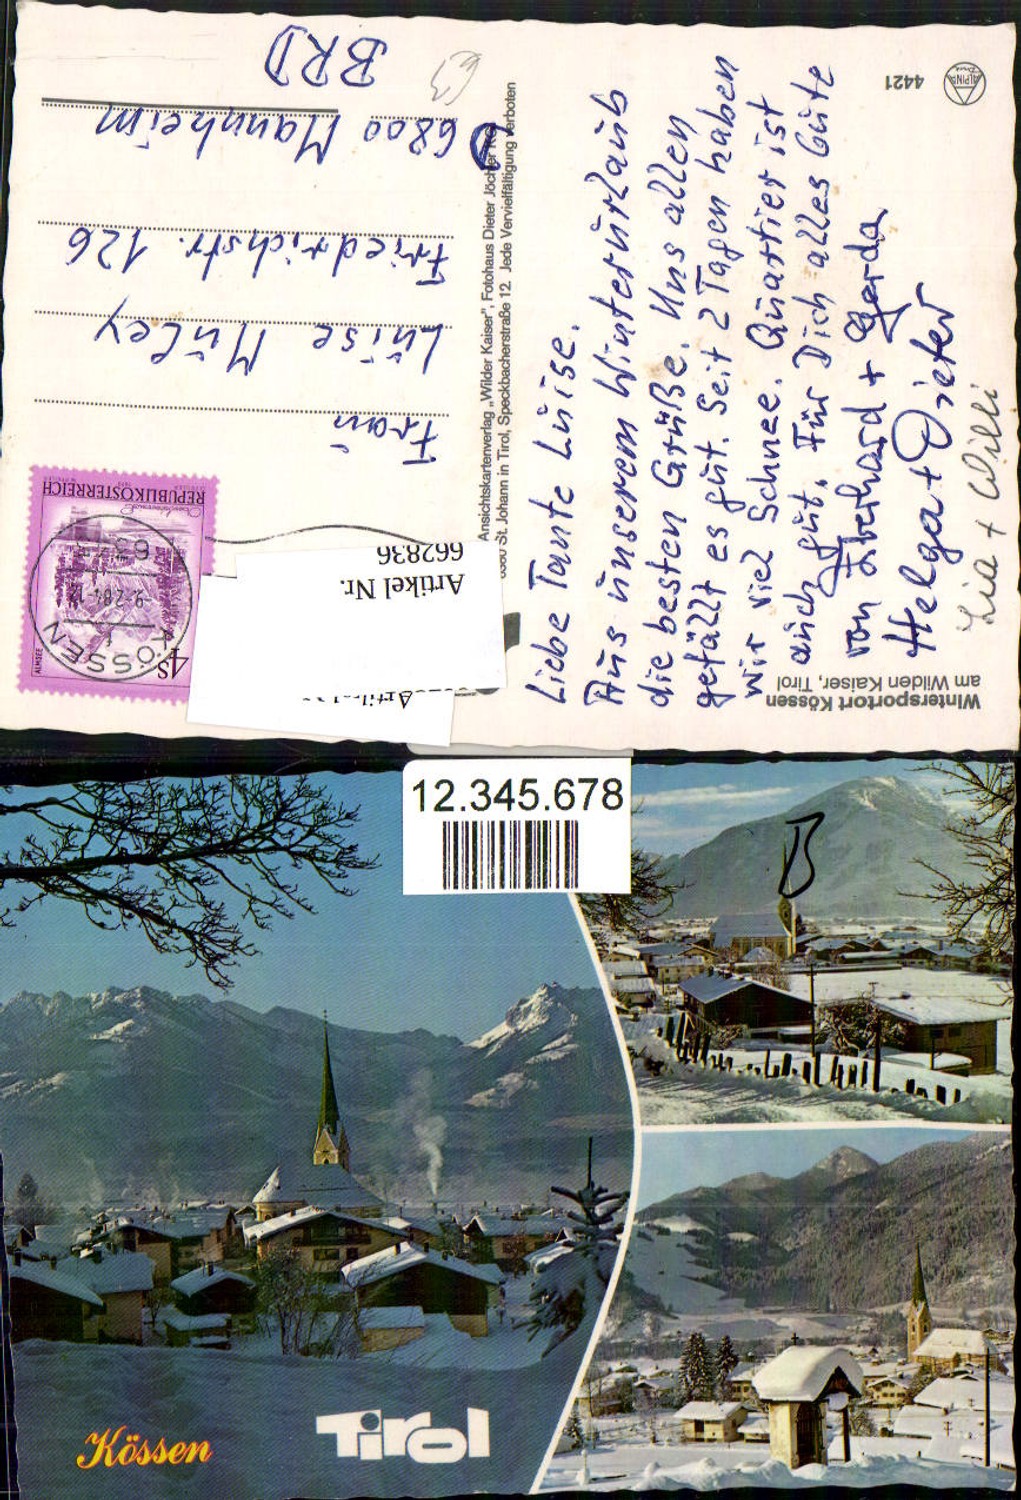 Wintersportort Kössen
am Wilden Kaiser, Tirol
ALPINA
Druck
4421
Liebe Tante Luise.
Aus unserem Winterurlaub
die besten Grüße. Uns allen
gefällt es gut. Seit 2 Tagen haben
wir viel Schnee. Quartier ist
auch gut. Für Dich alles Gute
von Eberhard + Gerda
Helga + Dieter
Lia + Willi
Ansichtskartenverlag „Wilder Kaiser", Fotohaus Dieter Jöchler KG
6380 St. Johann in Tirol, Speckbacherstraße 12. Jede Vervielfältigung verboten
REPUBLIK ÖSTERREICH
ALMSEE
4S
KÖSSEN
9.2.84
Frau
Luise Muley
Friedrichstr. 126
6800 Mannheim
BRD
Artikel Nr.
662836
12.345.678
Kössen
Tirol